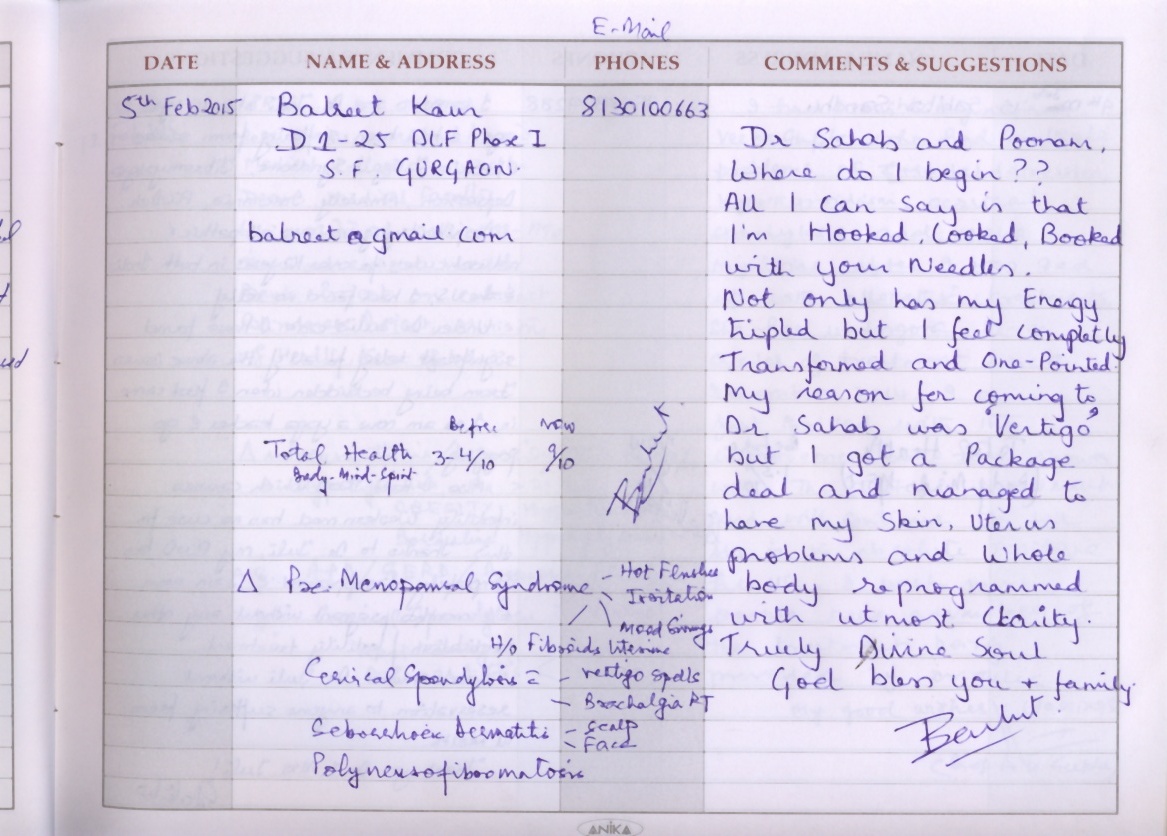 E-Mail
DATE NAME & ADDRESS PHONES COMMENTS & SUGGESTIONS
5th Feb 2015 Balreet Kaur 8130100663
D 1-25 DLF Phase I
S.F GURGAON.
balreet@gmail.com
Dr Sahab and Poonam,
Where do I begin??
All I can say is that
I'm Hooked, Cooked, Booked
with your Needles.
Not only has my Energy
tripled but I feel completly
Transformed and One-Pointed.
My reason for coming to
Dr Sahab was 'Vertigo'
but I got a Package
deal and managed to
have my Skin, Uterus
problems and Whole
body reprogrammed
with utmost Clarity.
Truely Divine Soul
God bless you + family.
Before Now
Total Health 3-4/10 9/10
Body-Mind-Spirit
Δ Pre-Menopausal Syndrome - Hot Flushes
- Irritation
Mood Swings
H/o Fibroids Uterine
Cervical Spondylosis - vertigo spells
- Brachalgia RT
Seborrhoeic Dermatitis - Scalp
- Face
Polyneurofibromatosis
ANIKA